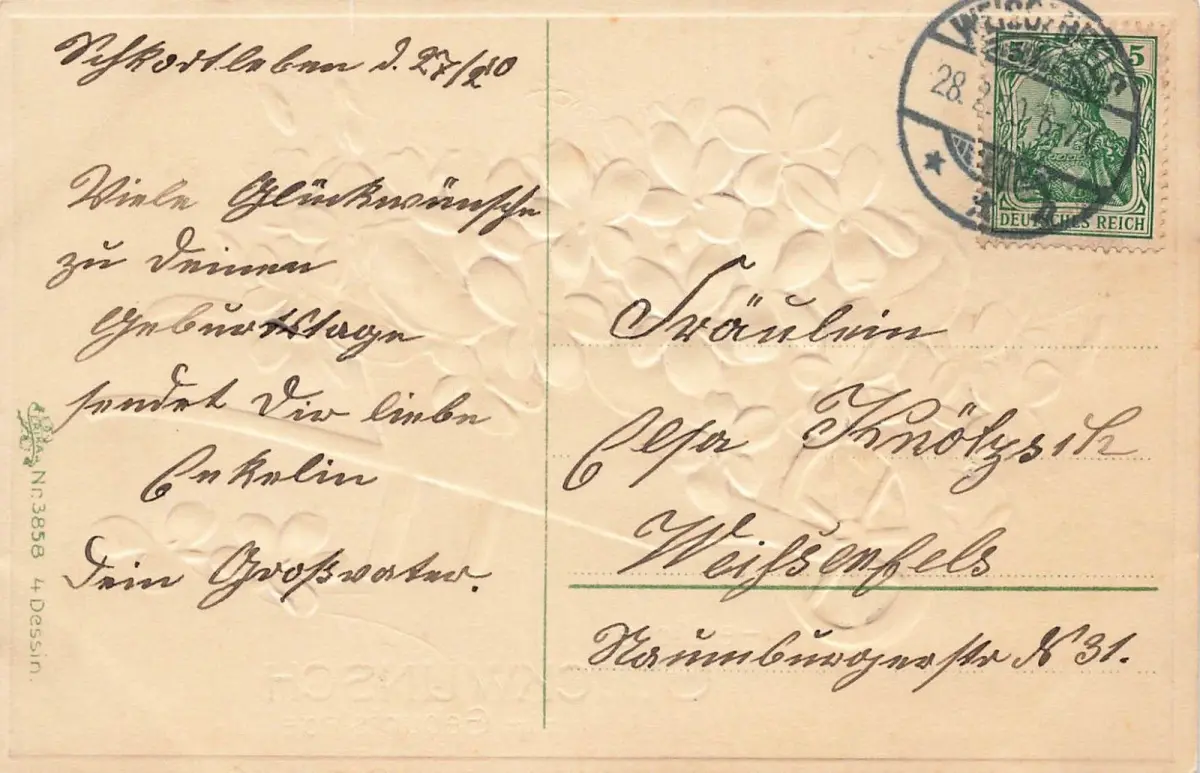 Schkortleben d. 27/2 10
Viele Glückwünsche
zu Deinen
Geburtstage
sendet Dir liebe
Enkelin
Dein Großvater.
Nr. 3858 4 Dessin.
28. 2. 10. 6-7
5 5
DEUTSCHES REICH
Fräulein
Elsa
Weißenfels
Naumburgerstr № 31.